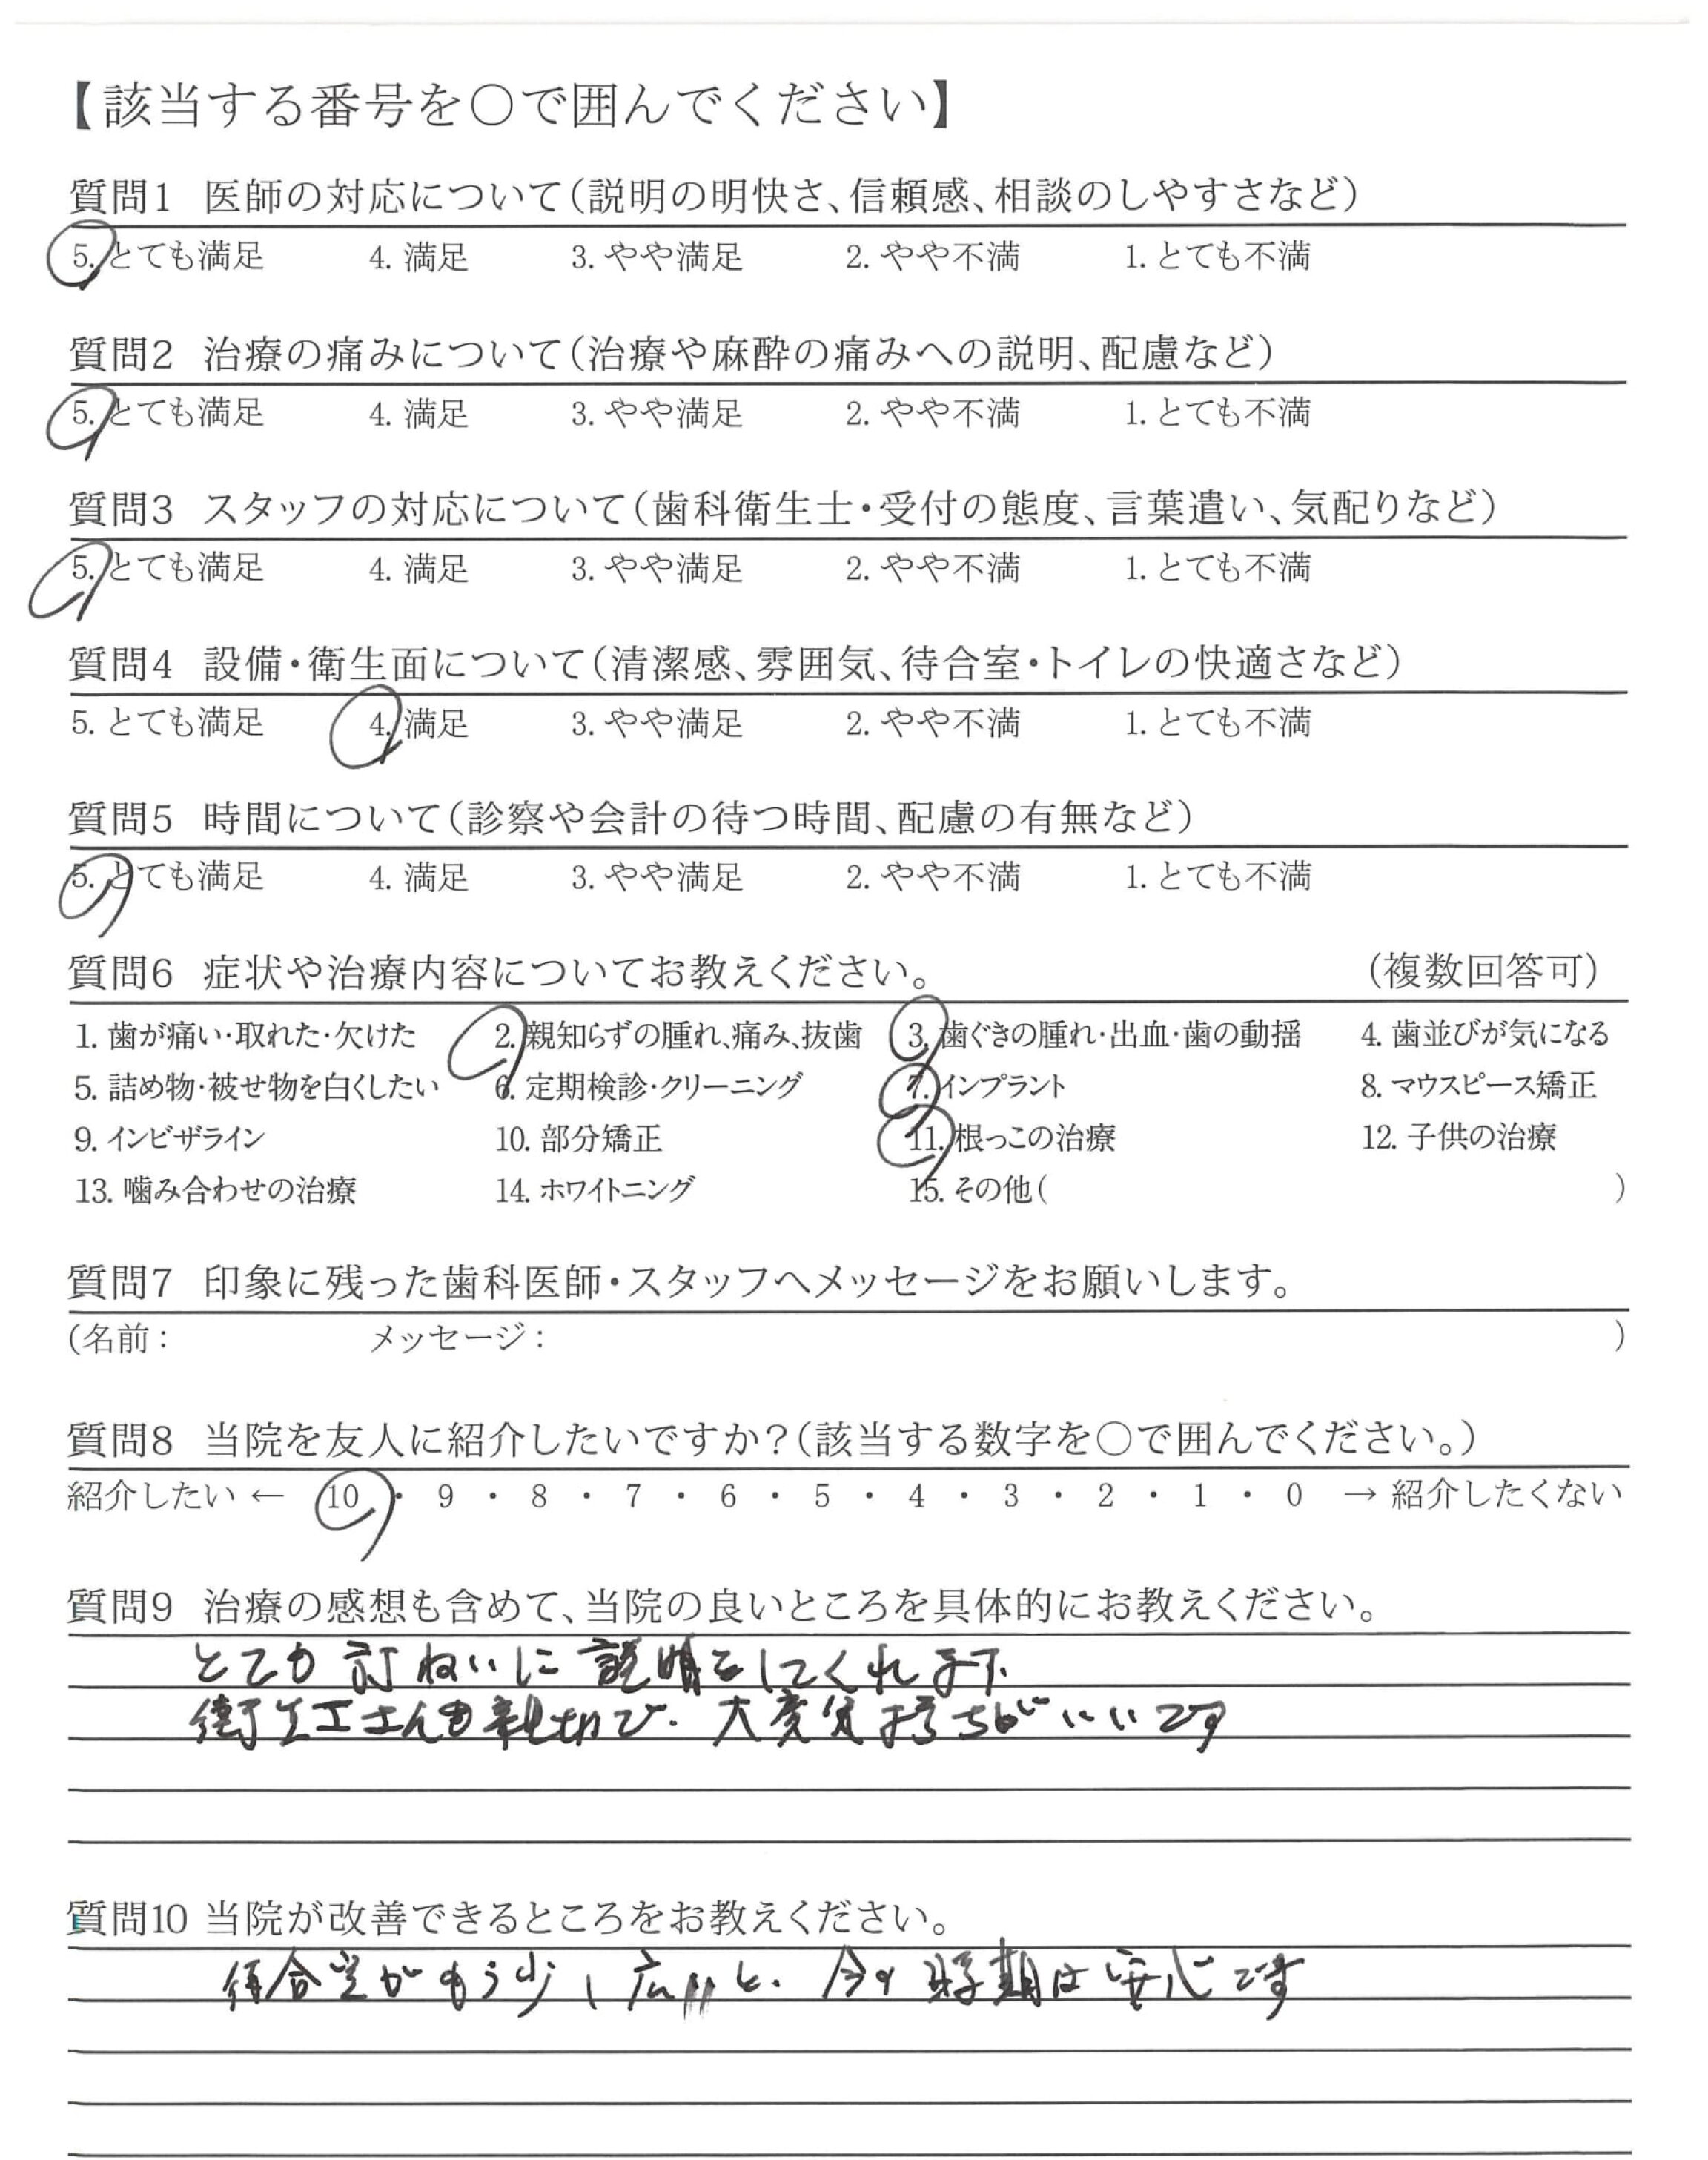 【該当する番号を○で囲んでください】
質問1 医師の対応について(説明の明快さ、信頼感、相談のしやすさなど)
5. とても満足 4. 満足 3. やや満足 2. やや不満 1. とても不満
質問2 治療の痛みについて(治療や麻酔の痛みへの説明、配慮など)
5. とても満足 4. 満足 3. やや満足 2. やや不満 1. とても不満
質問3 スタッフの対応について(歯科衛生士・受付の態度、言葉遣い、気配りなど)
5. とても満足 4. 満足 3. やや満足 2. やや不満 1. とても不満
質問4 設備・衛生面について(清潔感、雰囲気、待合室・トイレの快適さなど)
5. とても満足 4. 満足 3. やや満足 2. やや不満 1. とても不満
質問5 時間について(診察や会計の待つ時間、配慮の有無など)
5. とても満足 4. 満足 3. やや満足 2. やや不満 1. とても不満
質問6 症状や治療内容についてお教えください。 (複数回答可)
1. 歯が痛い・取れた・欠けた 2. 親知らずの腫れ、痛み、抜歯 3. 歯ぐきの腫れ・出血・歯の動揺 4. 歯並びが気になる
5. 詰め物・被せ物を白くしたい 6. 定期検診・クリーニング 7. インプラント 8. マウスピース矯正
9. インビザライン 10. 部分矯正 11. 根っこの治療 12. 子供の治療
13. 噛み合わせの治療 14. ホワイトニング 15. その他( )
質問7 印象に残った歯科医師・スタッフへメッセージをお願いします。
(名前: メッセージ: )
質問8 当院を友人に紹介したいですか?(該当する数字を○で囲んでください。)
紹介したい ← 10 ・ 9 ・ 8 ・ 7 ・ 6 ・ 5 ・ 4 ・ 3 ・ 2 ・ 1 ・ 0 → 紹介したくない
質問9 治療の感想も含めて、当院の良いところを具体的にお教えください。
とても訂ねいに説明をしてくれます.
衛生士さんも親切で、大変気持ちがいいです
質問10 当院が改善できるところをお教えください。
待合室がもう少し広いと、今の時期は安心です